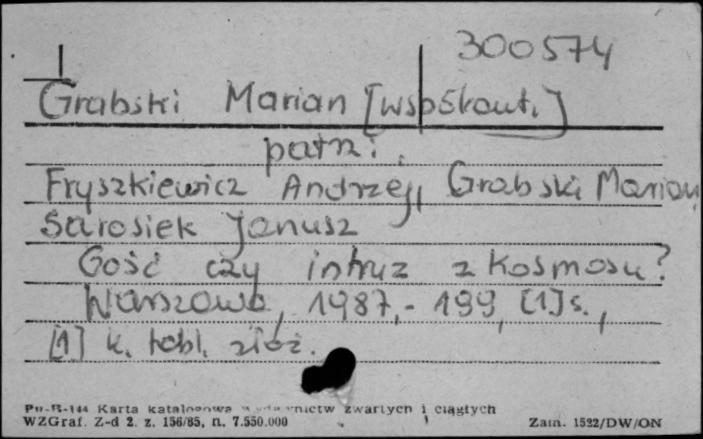 300574
Grabski Marian [współaut.]
patrz:
Fryszkiewicz Andrzej, Grabski Marian,
Sarosiek Janusz
Gość czy intruz z Kosmosu?
Warszawa, 1987.- 199, [1] s.,
[1] k. tabl. złoż.
Pu-B-144 Karta katalogowa wydawnictw zwartych i ciągłych
WZGraf. Z-d 2. z. 156/85, n. 7.550.000 Zam. 1522/DW/ON